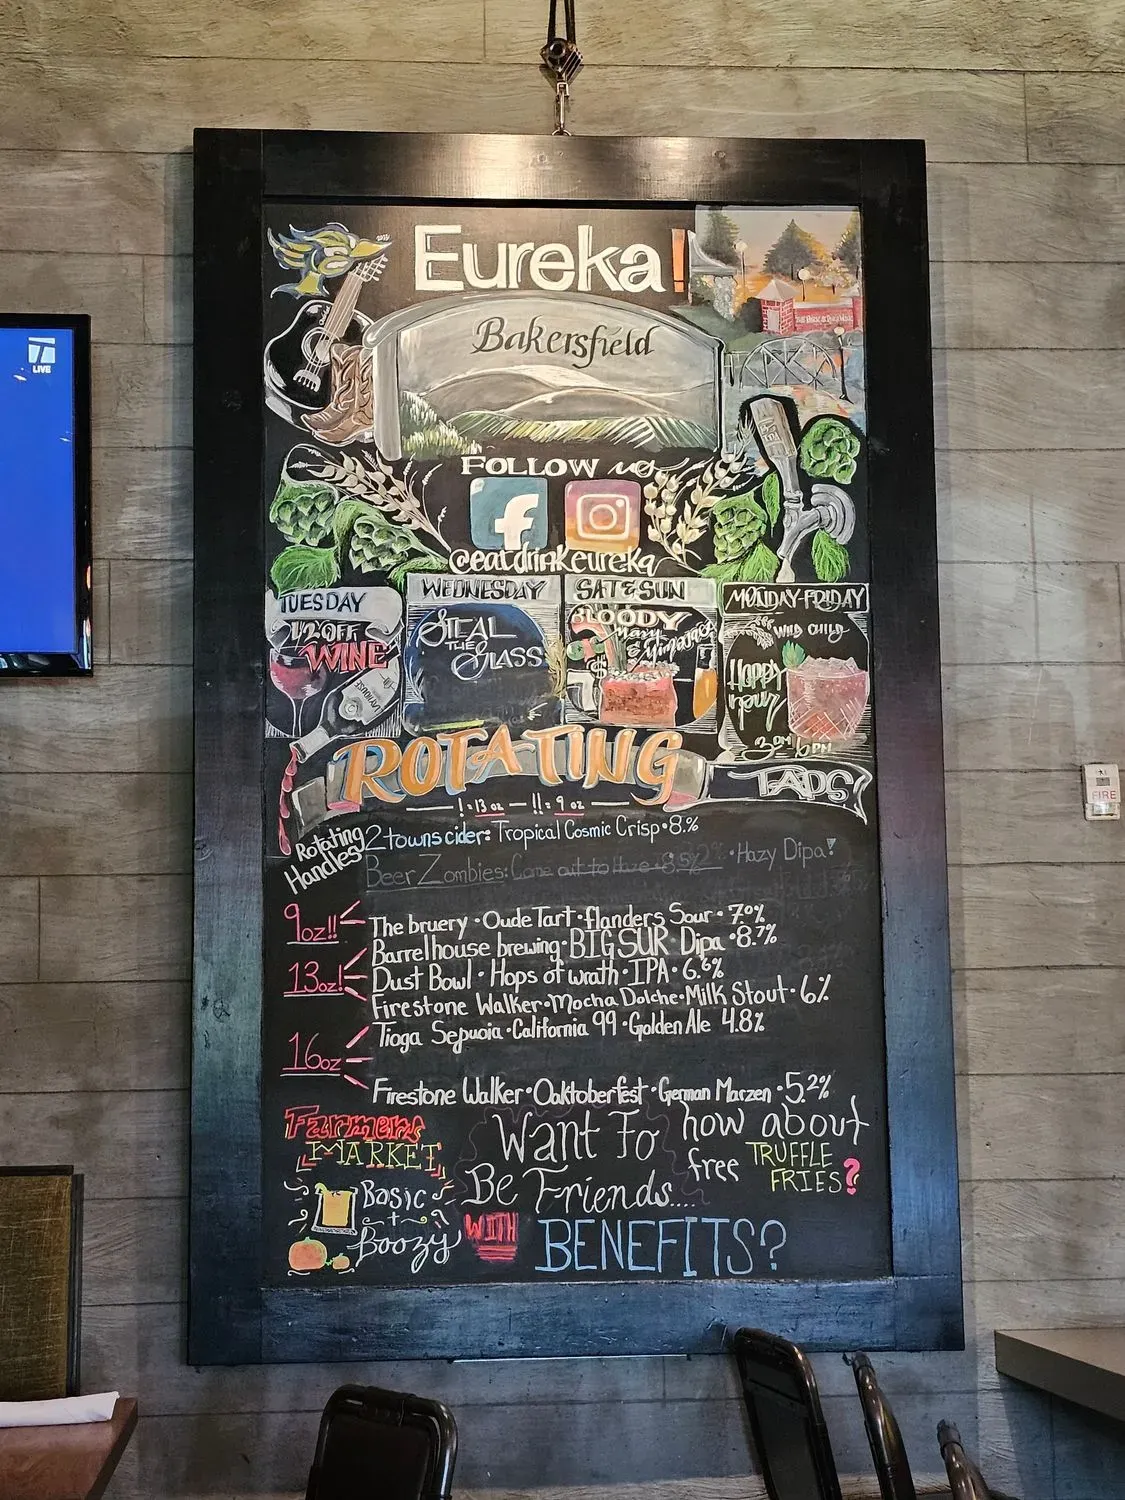 LIVE
Eureka!
Bakersfield
FOLLOW us
@eatdrinkeureka
TUESDAY
1/2 OFF
WINE
WEDNESDAY
STEAL
THE
GLASS
SAT & SUN
BLOODY
Mary
& Mimosas
$
MONDAY-FRIDAY
WILD CHILD
HAPPY
HOUR
3PM 6PM
ROTATING
TAPS
! = 13 oz — !! = 9 oz
Rotating
Handles
2 towns cider: Tropical Cosmic Crisp • 8.%
Beer Zombies: Come out to Haze • 8.5% • Hazy Dipa!
9oz!!
The bruery • Oude Tart • flanders Sour • 7.0%
Barrelhouse brewing • BIG SUR Dipa • 8.7%
13oz!
Dust Bowl • Hops of wrath • IPA • 6.6%
Firestone Walker • Mocha Dolche • Milk Stout • 6%
16oz
Tioga Sequoia • California 99 • Golden Ale 4.8%
Firestone Walker • Oaktoberfest • German Marzen • 5.2%
Farmers
MARKET
Basic
+
Boozy
Want To
Be Friends....
WITH
BENEFITS?
how about
free TRUFFLE
FRIES?
FIRE